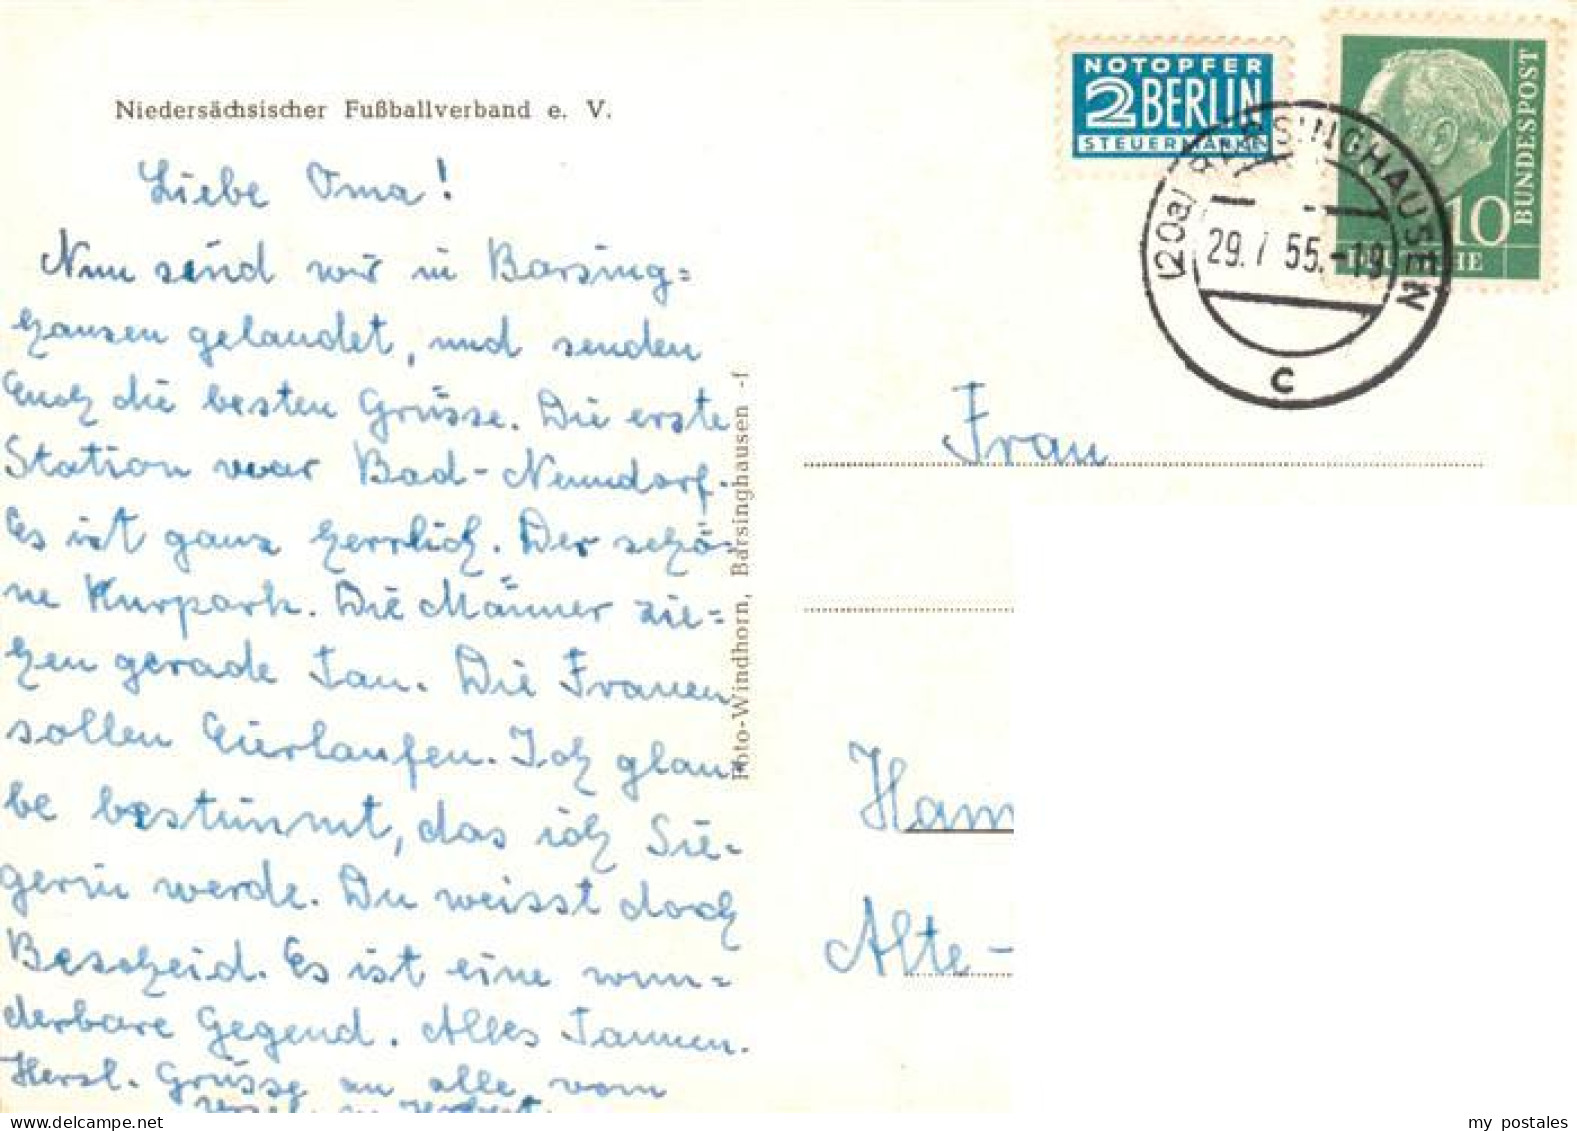 Niedersächsischer Fußballverband e. V.
Liebe Oma!
Nun seid wir in Barsing=
hausen gelandet, und senden
Euch die besten Grüsse. Die erste
Station war Bad-Nenndorf.
Es ist ganz herrlich. Der schö=
ne Kurpark. Die Männer zie=
hen gerade Tau. Die Frauen
sollen Eierlaufen. Ich glau=
be bestimmt, das ich Sie=
gerin werde. Du weisst doch
Bescheid. Es ist eine wun=
derbare Gegend. Alles Tannen.
Herzl. Grüsse an alle vom
Foto-Windhorn, Barsinghausen -f
NOTOPFER
2 BERLIN
STEUERMARKE
DEUTSCHE
BUNDESPOST
10
(20a) BARSINGHAUSEN
29.7 55.-19
c
Frau
Ham
Alte-
my postales
www.delcampe.net